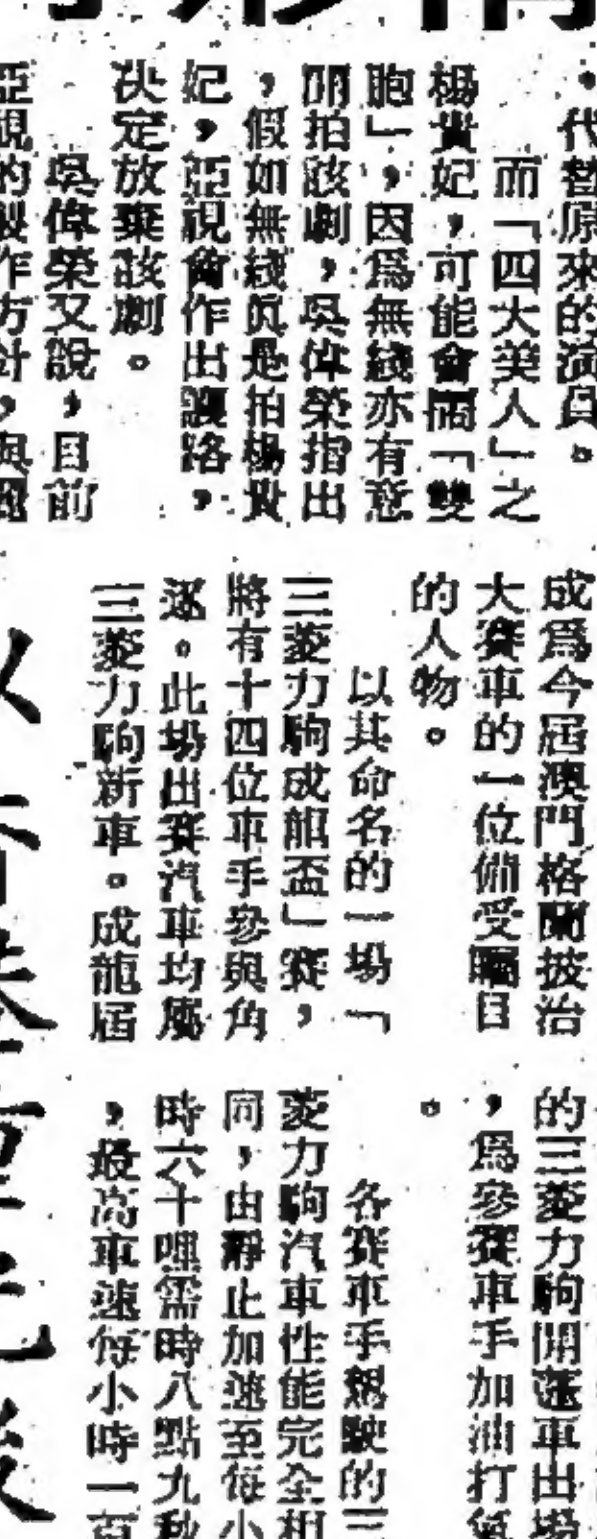 ，代替原來的演員。
而「四大美人」之
楊貴妃，可能會鬧「雙
胞」，因爲無綫亦有意
開拍該劇，吳偉榮指出
，假如無綫眞是拍楊貴
妃，亞視會作出讓路，
決定放棄該劇。
吳偉榮又說，目前
亞視的製作方針，與
成爲今屆澳門格蘭披治
大賽車的一位備受矚目
的人物。
以其命名的一場「
三菱力駒成龍盃」賽，
將有十四位車手參與角
逐。此場出賽汽車均屬
三菱力駒新車。成龍屆
的三菱力駒開篷車出場
，爲參賽車手加油打氣
。
各賽車手駕駛的三
菱力駒汽車性能完全相
同，由靜止加速至每小
時六十哩需時八點九秒
，最高車速每小時一百